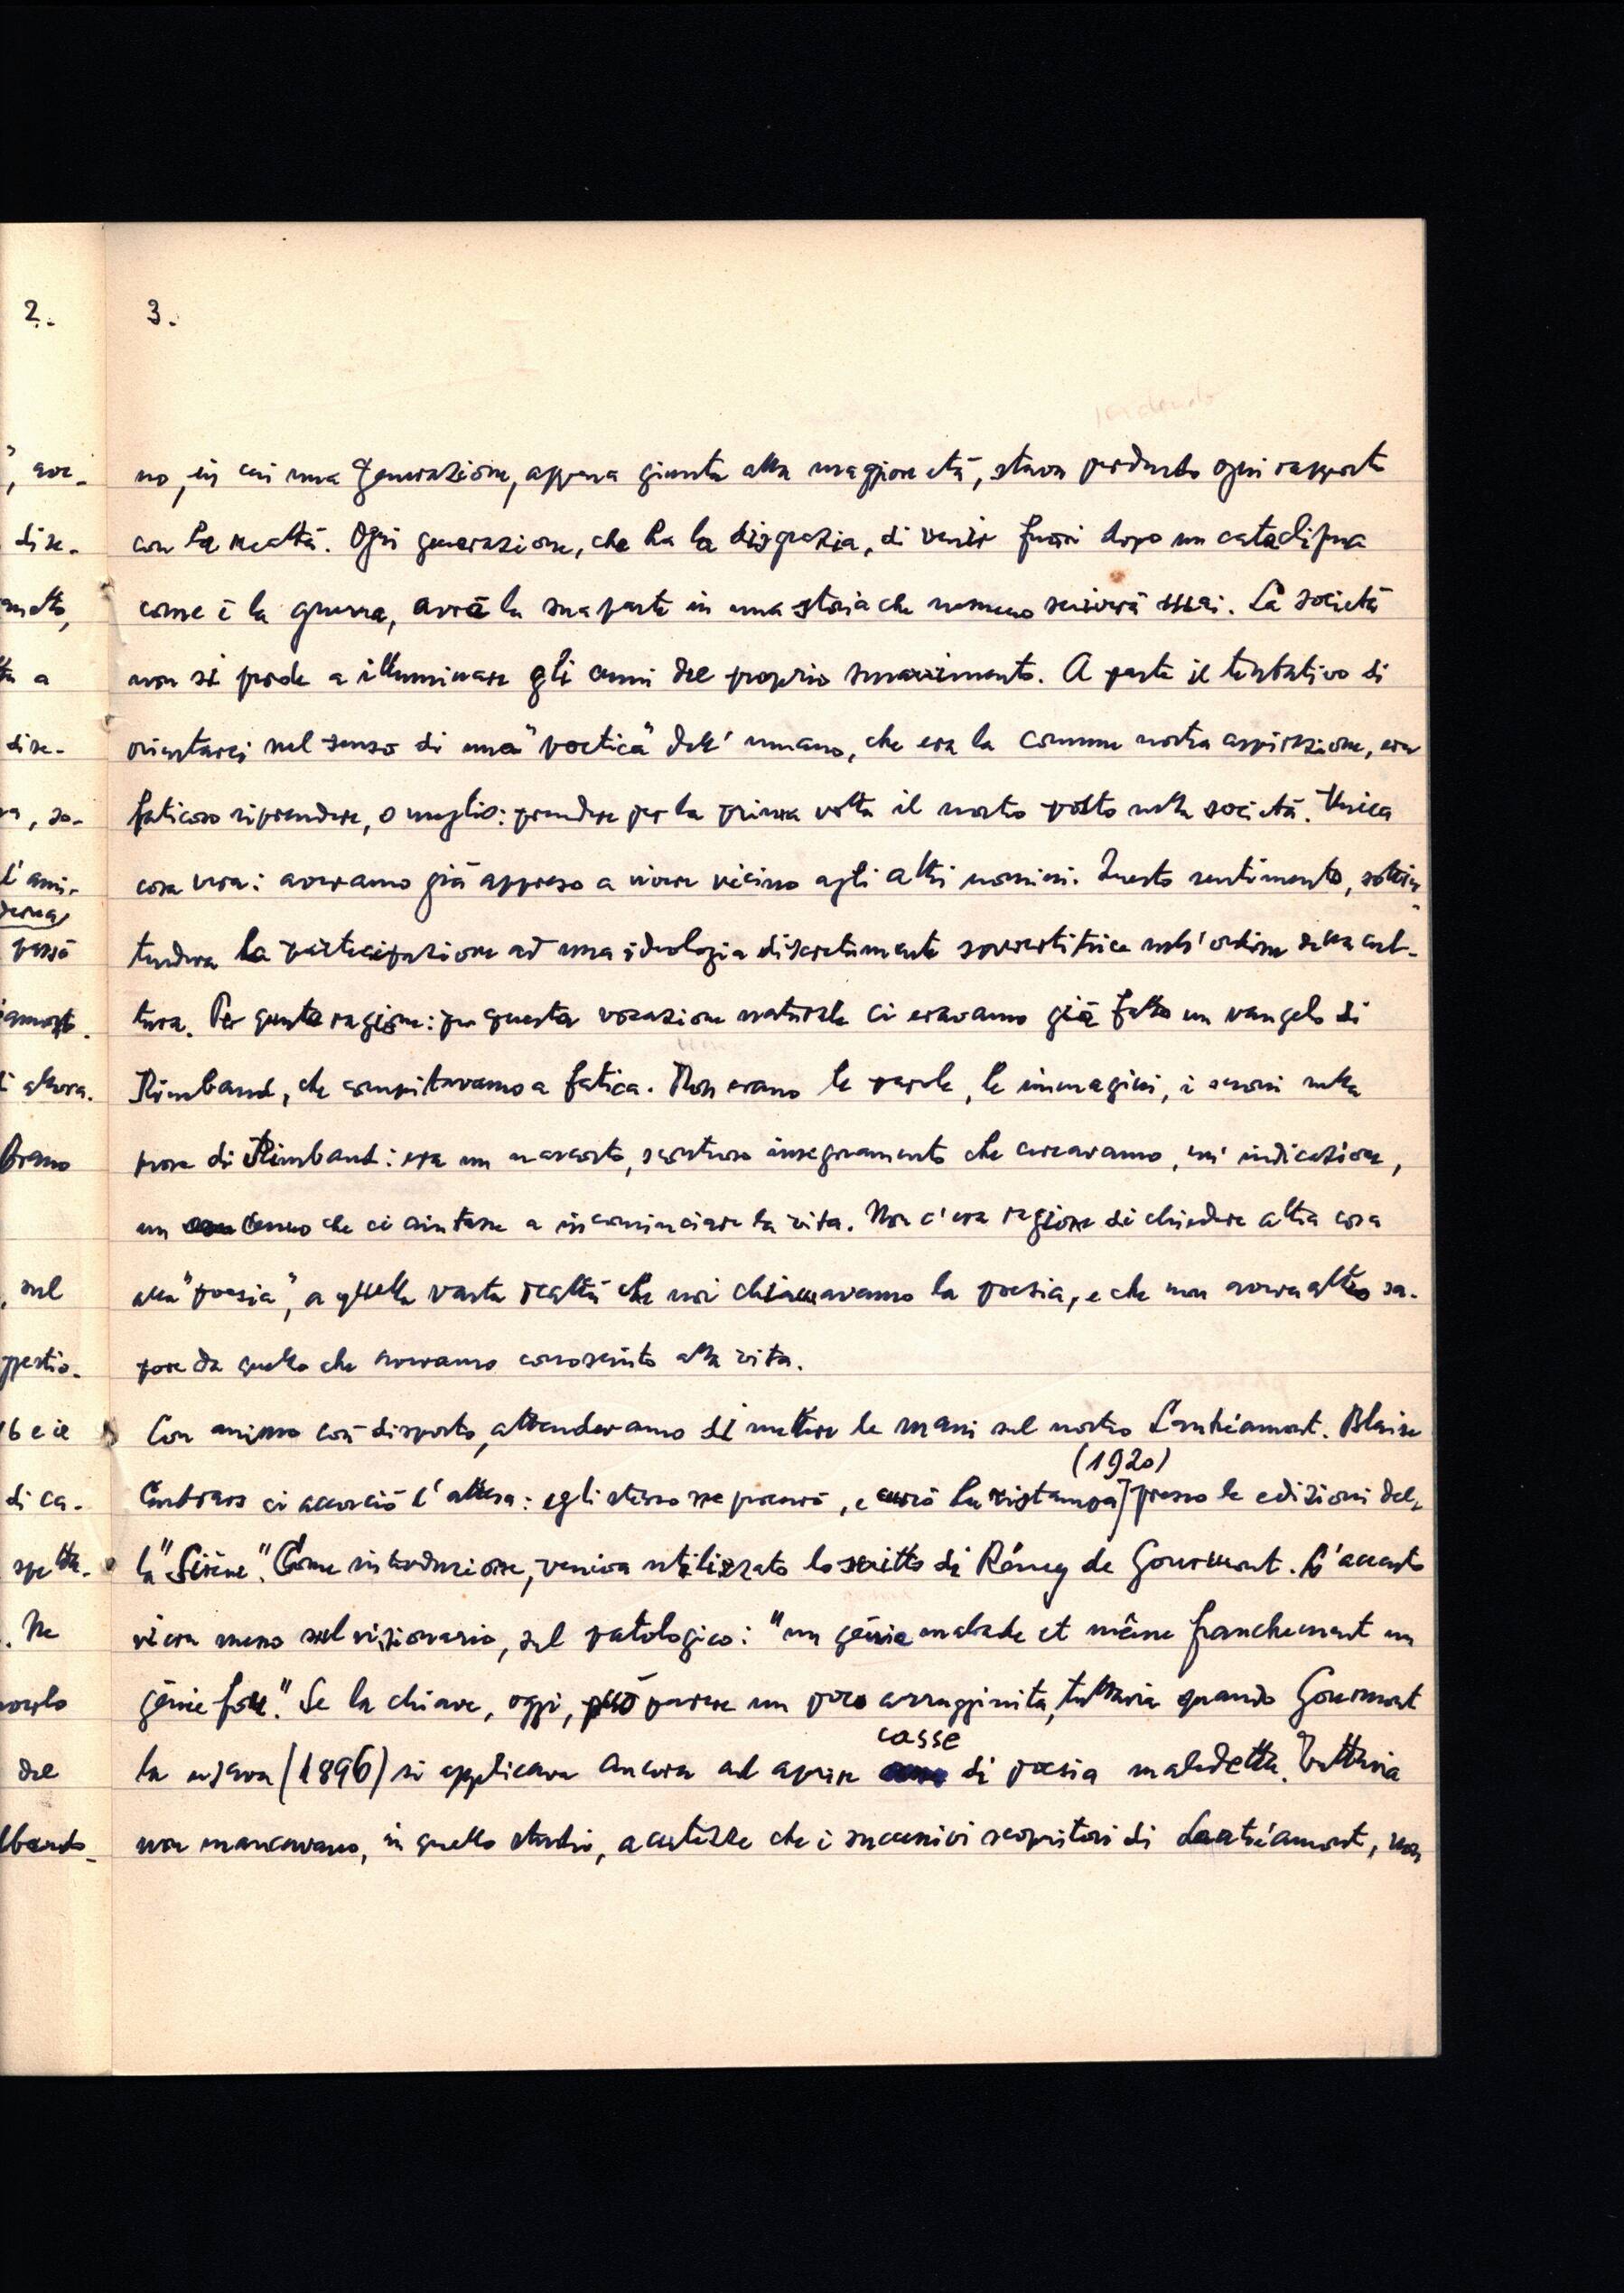 2.
3.
no, in cui una generazione, appena giunta alla maggiore età, stava perdendo ogni rapporto
con la realtà. Ogni generazione, che ha la disgrazia, di venir fuori dopo un cataclisma
come è la guerra, avrà la sua parte in una storia che nessuno scriverà mai. La società
non si perde a illuminare gli anni del proprio smarrimento. A parte il tentativo di
orientarci nel senso di una "poetica" dell'umano, che era la comune nostra aspirazione, era
faticoso riprendere, o meglio: prendere per la prima volta il nostro posto nella società. Unica
cosa vera: avevamo già appreso a vivere vicino agli altri uomini. Questo sentimento, sottin-
tendeva la partecipazione ad una ideologia discretamente sovvertitrice nell'ordine della cul-
tura. Per questa ragione: per questa vocazione naturale ci eravamo già fatto un vangelo di
Rimbaud, che compitavamo a fatica. Non erano le parole, le immagini, i suoni nella
prosa di Rimbaud: era un nascosto, scontroso insegnamento che cercavamo, un'indicazione,
un cenno che ci aiutasse a incominciare la vita. Non c'era ragione di chiedere altra cosa
alla "poesia", a quella vasta realtà che noi chiamavamo la poesia, e che non aveva altro sa-
pore da quello che avevamo conosciuto alla vita.
Con animo così disposto, attendevamo di mettere le mani sul nostro Lautréamont. Blaise
Cendrars ci accorciò l'attesa: egli stesso ne procurò, e curò la ristampa (1920) presso le edizioni del-
la "Sirène". Come introduzione, veniva utilizzato lo scritto di Rémy de Gourmont. L'accento
viera messo sul visionario, sul patologico: "un génie malade et même franchement un
génie fou". Se la chiave, oggi, può parere un poco arrugginita, tuttavia quando Gourmont
la usava (1896) si applicava ancora ad aprire casse di poesia maledetta. Tuttavia
non mancavano, in quello studio, acutezze che i successivi scopritori di Lautréamont, non